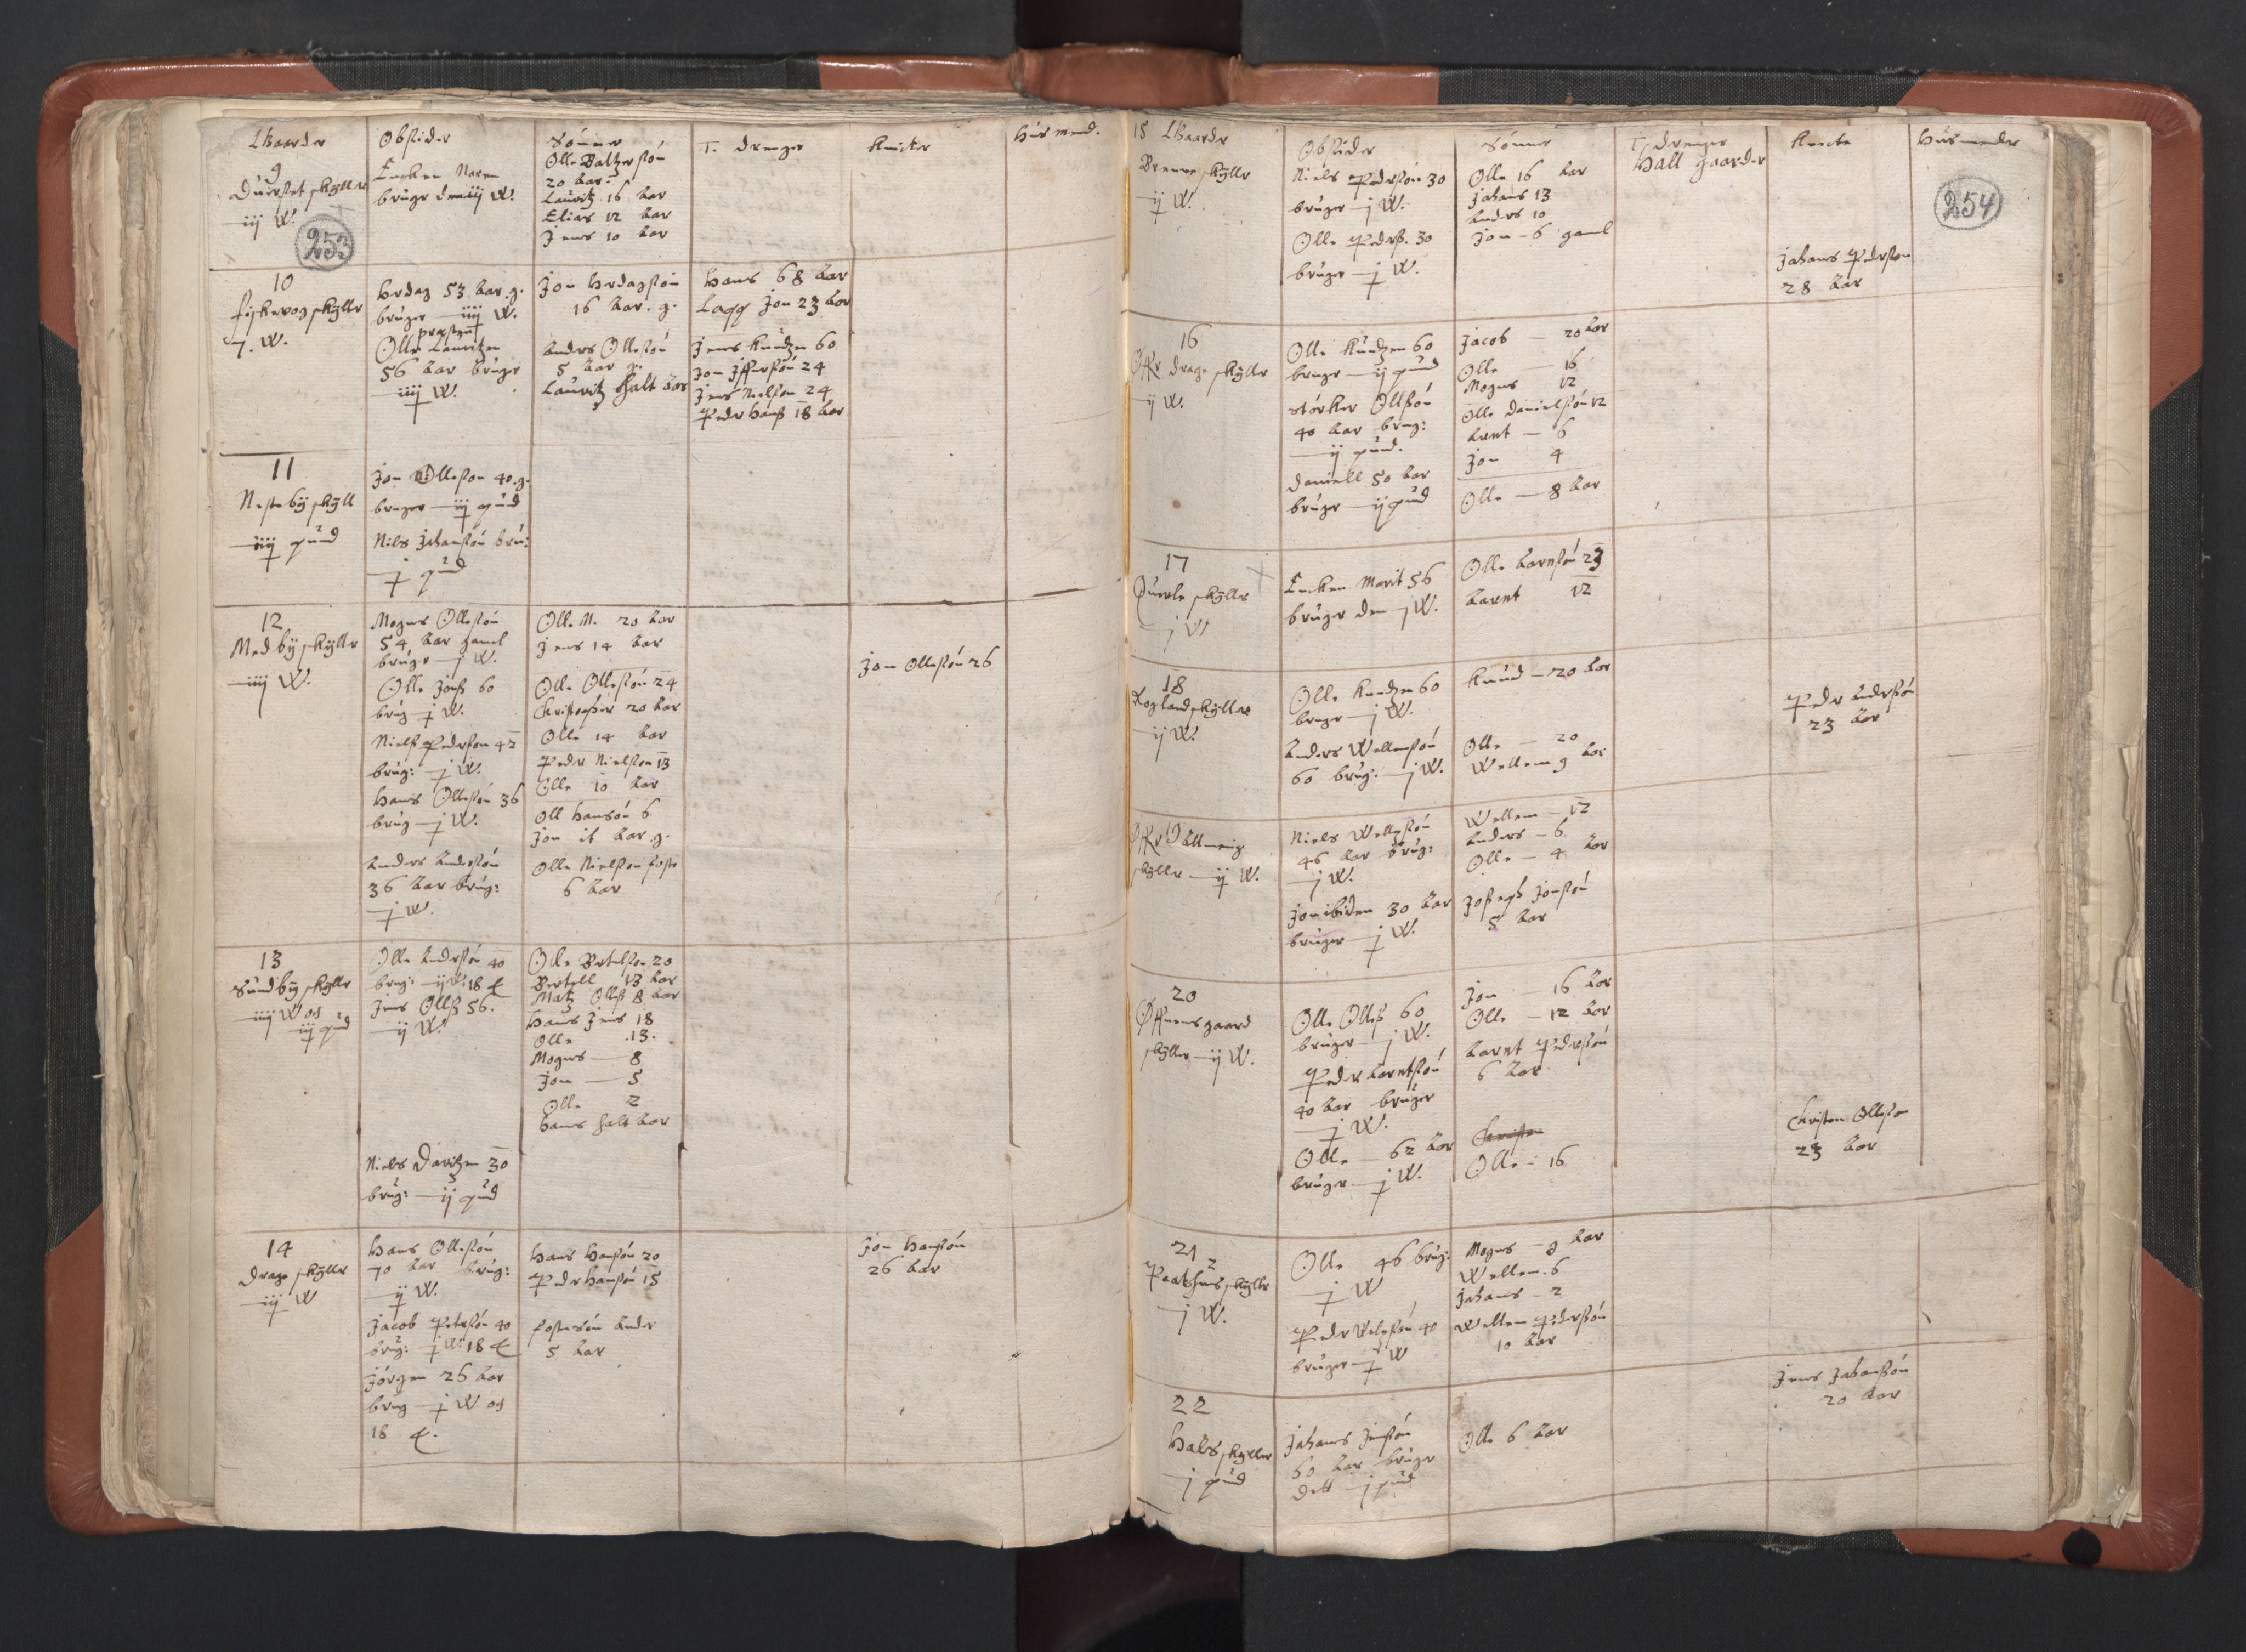 Gaarder
Obsider
Sönner
T. drenger
Knicter
Hüsmend.
9
skyller
iij W.
253
Encken Maren
bruger den iij W.
Olle Baltzersön
20 Aar.
Lauritz 16 Aar
Elias 12 Aar
Jens 10 Aar
10
Fiskevog skyller
7. W.
53 Aar. g.
bruger iiij W.
presten
Olle Lauritzen
56 Aar bruger
iiij W.
Jon
16 Aar. g.
Anders Ollesön
5 Aar g.
Lauritz halt Aar
Hans 68 Aar
Lapp Jon 23 Aar
Jens Knudzen 60
Jon Iffuersön 24
Jens Nielsen 24
Peder Hanß 18 Aar
11
Nesteby skyll
iiij pund
Jon Olleson 40. g.
bruger iij pund
Nils Johansön brü:
j pud
12
Medby skyller
iiij W.
Mogens Ollesön
54 Aar gamel
bruger j W.
Olle Jonß 60
brüg j W.
Nielß Pederson 42
brüg: j W.
Hans Ollesön 36
brüg j W.
Anders Andersön
36 Aar brüg:
j W.
Olle M. 20 Aar
Jens 14 Aar
Olle Ollesön 24
Christopher 20 Aar
Olle 14 Aar
Peder Nielsson 13
Olle 10 Aar
Oll Hansön 6
Jon it Aar. g.
Olle Nielsen foste
6 Aar
Jon Ollesön 26
13
Sündby skyller
iiij W og
iij pud
Olle Andersön 40
brüg: ij W. 18
Jens Ollß 56.
ij W.
Niels Davitzen 30
brüg: ij pud
Olle Bertelsen 20
Bertell 13 Aar
Matz Ollß 8 Aar
Hans Jens 18
Olle 13.
Mogens 8
Jon 5
Olle 2
Hans halt Aar
14
Drage skyller
iij W
Hans Ollesön
70 Aar brüg:
ij W.
Jacob Petersön 40
brüg: j W. 18
Jörgen 26 Aar
brüg j W og
18
Hans Hansön 20
Peder Hansön 15
fostersön Ander
5 Aar
Jon Hansön
26 Aar
15 Gaarder
Obsider
Sönner
T. drenger
Knecte
Hüsmender
254
skyller
ij W.
Niels Pedersön 30
bruger j W.
Olle Pederß. 30
bruger j W.
Olle 16 Aar
Johans 13
Anders 10
Jon 6 gaml
Hall gaarder
Johans Pederson
28 Aar
16
Offr Drage skyller
ij W.
Olle Knudzen 60
bruger ij pund
Störker Ollßön
40 Aar brug:
ij pund.
Daniell 50 Aar
bruger ij pud
Jacob 20 Aar
Olle 16
Mogens 12
Olle Danielsön 12
Arent 6
Jon 4
Olle 8 Aar
17
skyller
j W
Encken Marit 56
bruger den j W.
Olle Aarnsön 23
Aarnt 12
18
skyller
ij W.
Olle Knudzen 60
bruger j W.
Anders Wellemsön
60 brüg: j W.
Knud 20 Aar
Olle 20
Wellem 9 Aar
Peder Andersön
23 Aar
skyller ij W.
Niels
46 Aar brüg:
j W.
Jon ibiden 30 Aar
bruger j W.
Wellem 12
Anders 6
Olle 4 Aar
Joseph Jonsön
5 Aar
20
gaard
skyller ij W.
Olle Olleß 60
bruger j W.
Peder Aarntsön
40 Aar bruger
j W.
Olle 62 Aar
bruger j W.
Jon 16 Aar
Olle 12 Aar
Aarnt Pedersön
6 Aar
Christen
Olle 16
Christen Olleson
23 Aar
21
skyller
j W.
Olle 46 brüg:
j W
Peder 40
bruger j W
Mogens 9 Aar
Wellem 6
Johans 2
Wellem Pedersön
10 Aar
22
Hals skyller
j pud
Johans Jensön
60 Aar bruger
dett j pud
Olle 6 Aar
Jens Johansön
20 Aar